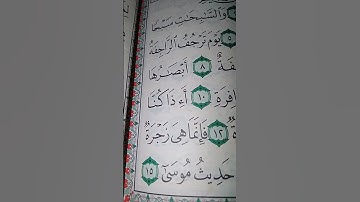 وَٱلسَّٰبِحَٰتِ سَبۡحٗا
٥ يَوۡمَ تَرۡجُفُ ٱلرَّاجِفَةُ
٨ أَبۡصَٰرُهَا
١٠ أَءِذَا كُنَّا
١٢ فَإِنَّمَا هِيَ زَجۡرَةٞ
حَدِيثُ مُوسَىٰٓ ١٥